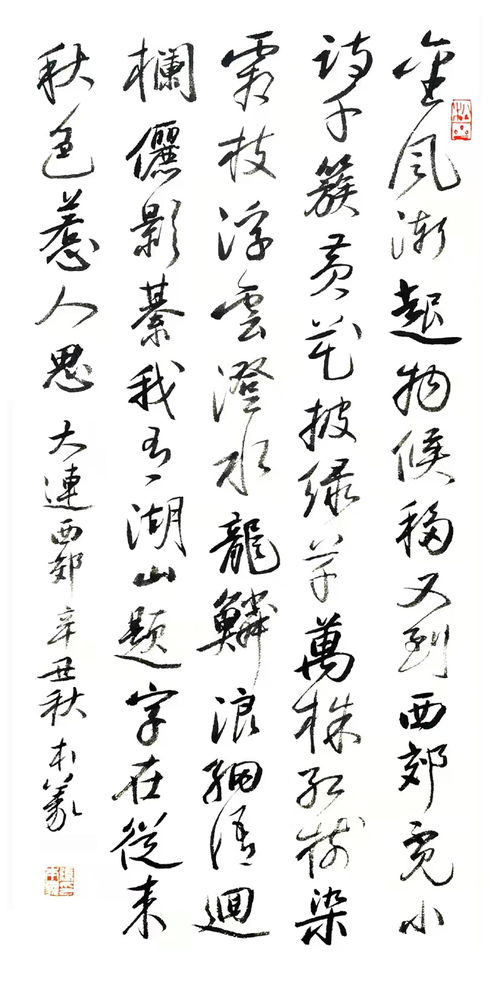 金風漸起物候移又到西郊覓小
詩千簇黃花披绿草萬株紅樹染
霜枝浮雲澄水龍鱗浪細迴
欄儷影綦我有湖山題字在從来
秋色惹人思 大連西郊辛丑秋 本義